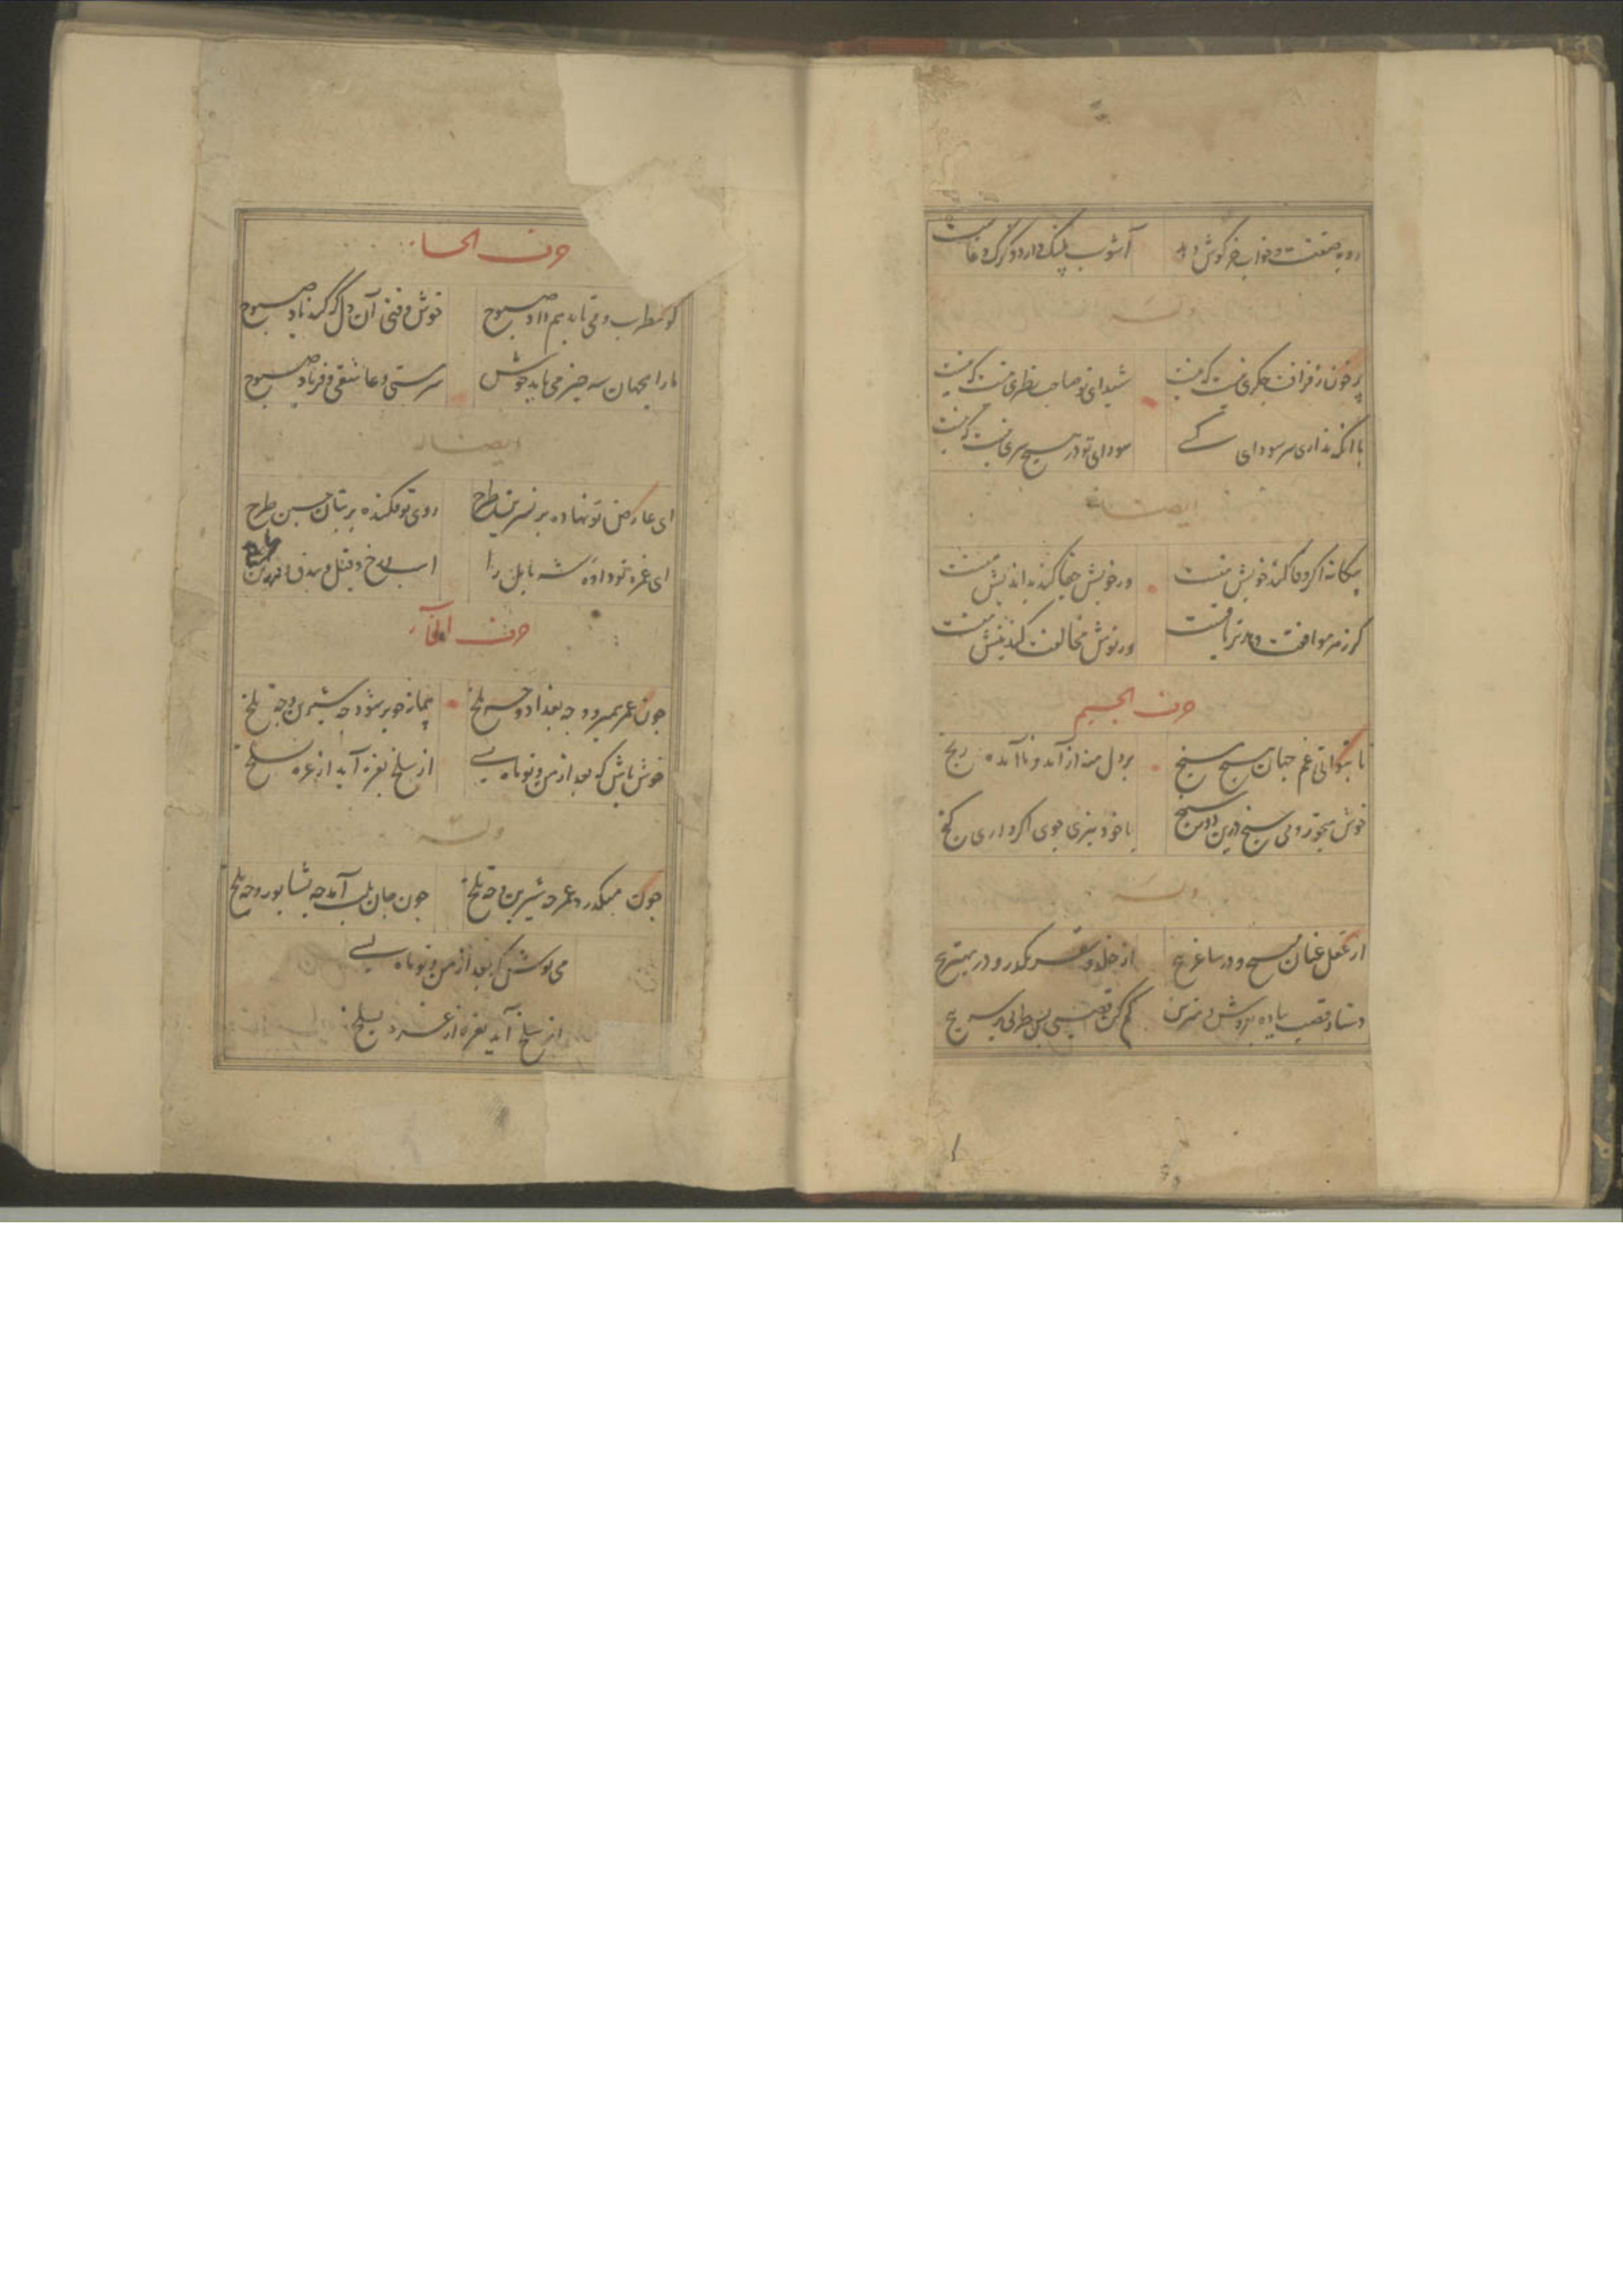 روبه صفتست و خواب خرگوش دهد آشوب پلنگ دارد و گرگ دغاست
وله
پر خون ز فراقت جگری نیست که نیست شیدای تو صاحب نظری نیست که نیست
با آنکه نداری سر سودای کسی سودای تو در هیچ سری نیست که نیست
ایضا له
بیگانه اگر وفا کند خویش منست ور خویش جفا کند بداندیش منست
گر زهر موافقت دهد تریاقست ور نوش مخالفت کند نیش منست
حرف الجیم
تا بتوانی غم جهان هیچ مسنج بر دل منه از آمده و ناآمده رنج
خوش میخور و می سنج درین دیر سپنج با خود نبری جوی اگر داری گنج
وله
از عقل عنان بپیچ و در ساغر پیچ از خلد و سقر بگذر و در بهتر پیچ
دستار قصب بباده بفروش و مترس کم کن قصبی پس طرفی بر سر پیچ
حرف الحاء
کو مطرب و می تا بدهم داد صبوح خوش وقتی آن دل که کند یاد صبوح
ما را بجهان سه چیز می باید خوش سرمستی و عاشقی و فریاد صبوح
ایضا له
ای عارض تو نهاده بر نسرین طرح روی تو فکنده بر بتان چین طرح
ای غمزه تو داده شه بابل را اسب و رخ و فیل و بیدق و فرزین
حرف الخاء
چون عمر بسر رود چه بغداد و چه بلخ پیمانه چو پر شود چه شیرین و چه تلخ
خوش باش که بعد از من و تو ماه بسی از سلخ بغره آید از غره بسلخ
وله
چون میگذرد عمر چه شیرین و چه تلخ چون جان بلب آمد چه نشابور و چه بلخ
می نوش که بعد از من و تو ماه بسی
از سلخ آید بغره از غره بسلخ